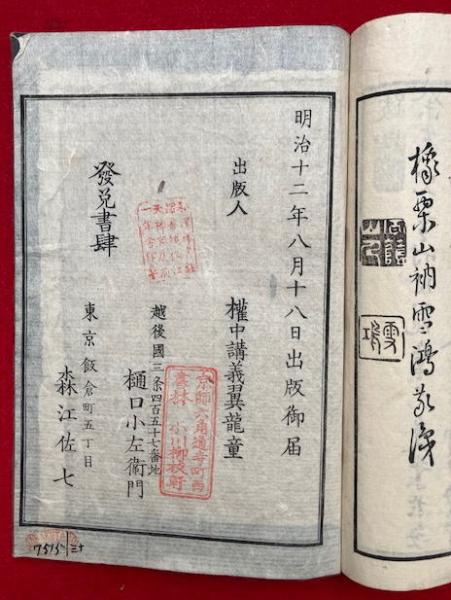 橡栗山衲雪鴻敬識
明治十二年八月十八日出版御届
出版人
權中講義翼龍童
越後國三条四百五十七番地
樋口小左衛門
發兌書肆
東京飯倉町五丁目
森江佐七
京師六角通寺町西
書林 小川柳枝軒